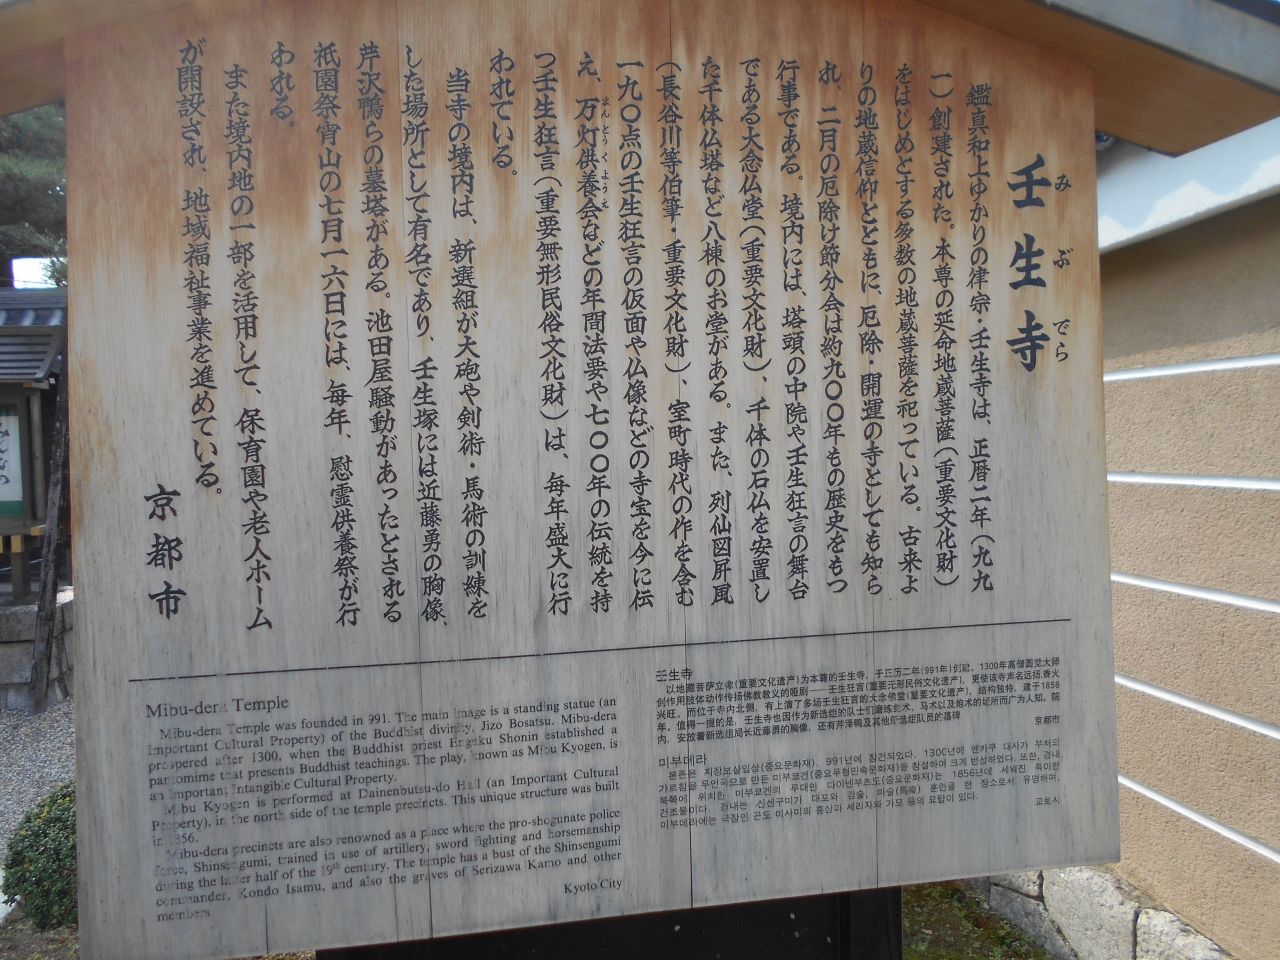 壬生寺
みぶでら
鑑真和上ゆかりの律宗・壬生寺は、正暦二年(九九
一)創建された。本尊の延命地蔵菩薩(重要文化財)
をはじめとする多数の地蔵菩薩を祀っている。古来よ
りの地蔵信仰とともに、厄除・開運の寺としても知ら
れ、二月の厄除け節分会は約九〇〇年もの歴史をもつ
行事である。境内には、塔頭の中院や壬生狂言の舞台
である大念仏堂(重要文化財)、千体の石仏を安置し
た千体仏塔など八棟のお堂がある。また、列仙図屏風
(長谷川等伯筆・重要文化財)、室町時代の作を含む
一九〇点の壬生狂言の仮面や仏像などの寺宝を今に伝
え、万灯供養会などの年間法要や七〇〇年の伝統を持
まんとうくようえ
つ壬生狂言(重要無形民俗文化財)は、毎年盛大に行
われている。
当寺の境内は、新選組が大砲や剣術・馬術の訓練を
した場所として有名であり、壬生塚には近藤勇の胸像、
芹沢鴨らの墓塔がある。池田屋騒動があったとされる
祇園祭宵山の七月一六日には、毎年、慰霊供養祭が行
われる。
また境内地の一部を活用して、保育園や老人ホーム
が開設され、地域福祉事業を進めている。
京都市
Mibu-dera Temple
Mibu-dera Temple was founded in 991. The main image is a standing statue (an
Important Cultural Property) of the Buddhist divinity, Jizo Bosatsu. Mibu-dera
prospered after 1300, when the Buddhist priest Engaku Shonin established a
pantomime that presents Buddhist teachings. The play, known as Mibu Kyogen, is
an Important Intangible Cultural Property.
Mibu Kyogen is performed at Dainenbutsu-do Hall (an Important Cultural
Property), in the north side of the temple precincts. This unique structure was built
in 1856.
Mibu-dera precincts are also renowned as a place where the pro-shogunate police
force, Shinsengumi, trained in use of artillery, sword fighting and horsemanship
during the latter half of the 19th century. The temple has a bust of the Shinsengumi
commander, Kondo Isamu, and also the graves of Serizawa Kamo and other
members
Kyoto City
壬生寺
以地藏菩萨立像(重要文化遗产)为本尊的壬生寺,于正历二年(991年)创建。1300年高僧圆觉大师
创作用肢体动作传扬佛教教义的哑剧——壬生狂言(重要无形民俗文化遗产),更使该寺声名远扬,香火
兴旺。而位于寺内北侧,有上演了多场壬生狂言的大念佛堂(重要文化遗产),结构独特,建于1856
年。值得一提的是,壬生寺也因作为新选组的队士们磨练剑术、马术以及炮术的场所而广为人知。院
内,安放着新选组局长近藤勇的胸像,还有芹泽鸭及其他新选组队员的墓碑
京都市
미부데라
본존은 지장보살입상(중요문화재). 991년에 창건되었다. 1300년에 엔카쿠 대사가 부처의
가르침을 무언극으로 만든 미부쿄겐(중요무형민속문화재)을 창설하여 크게 번성하였다. 또한, 경내
북쪽에 위치한 미부쿄겐의 무대인 다이넨부츠도(중요문화재)는 1856년에 세워진 특이한
건조물이다. 경내는 신센구미가 대포와 검술, 마술(馬術) 훈련을 한 장소로서 유명하며,
미부데라에는 국장인 곤도 이사미의 흉상과 세리자와 가모 등의 묘탑이 있다.
교토시